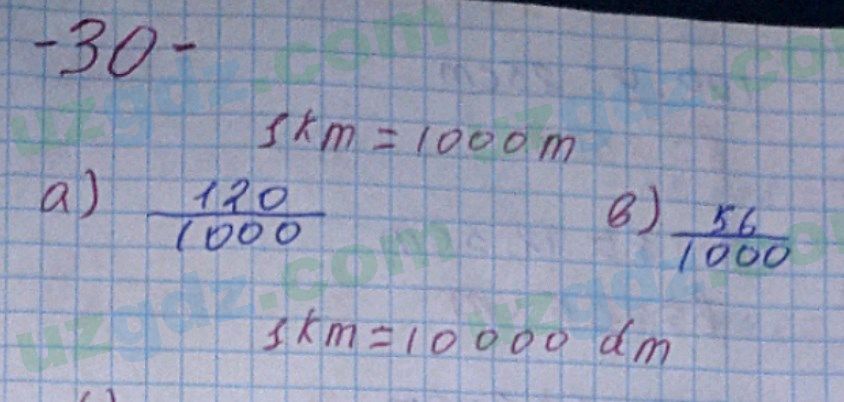 -30-
1km = 1000m
a) 120/1000 b) 56/1000
1km = 10000 dm
uzgdz.com